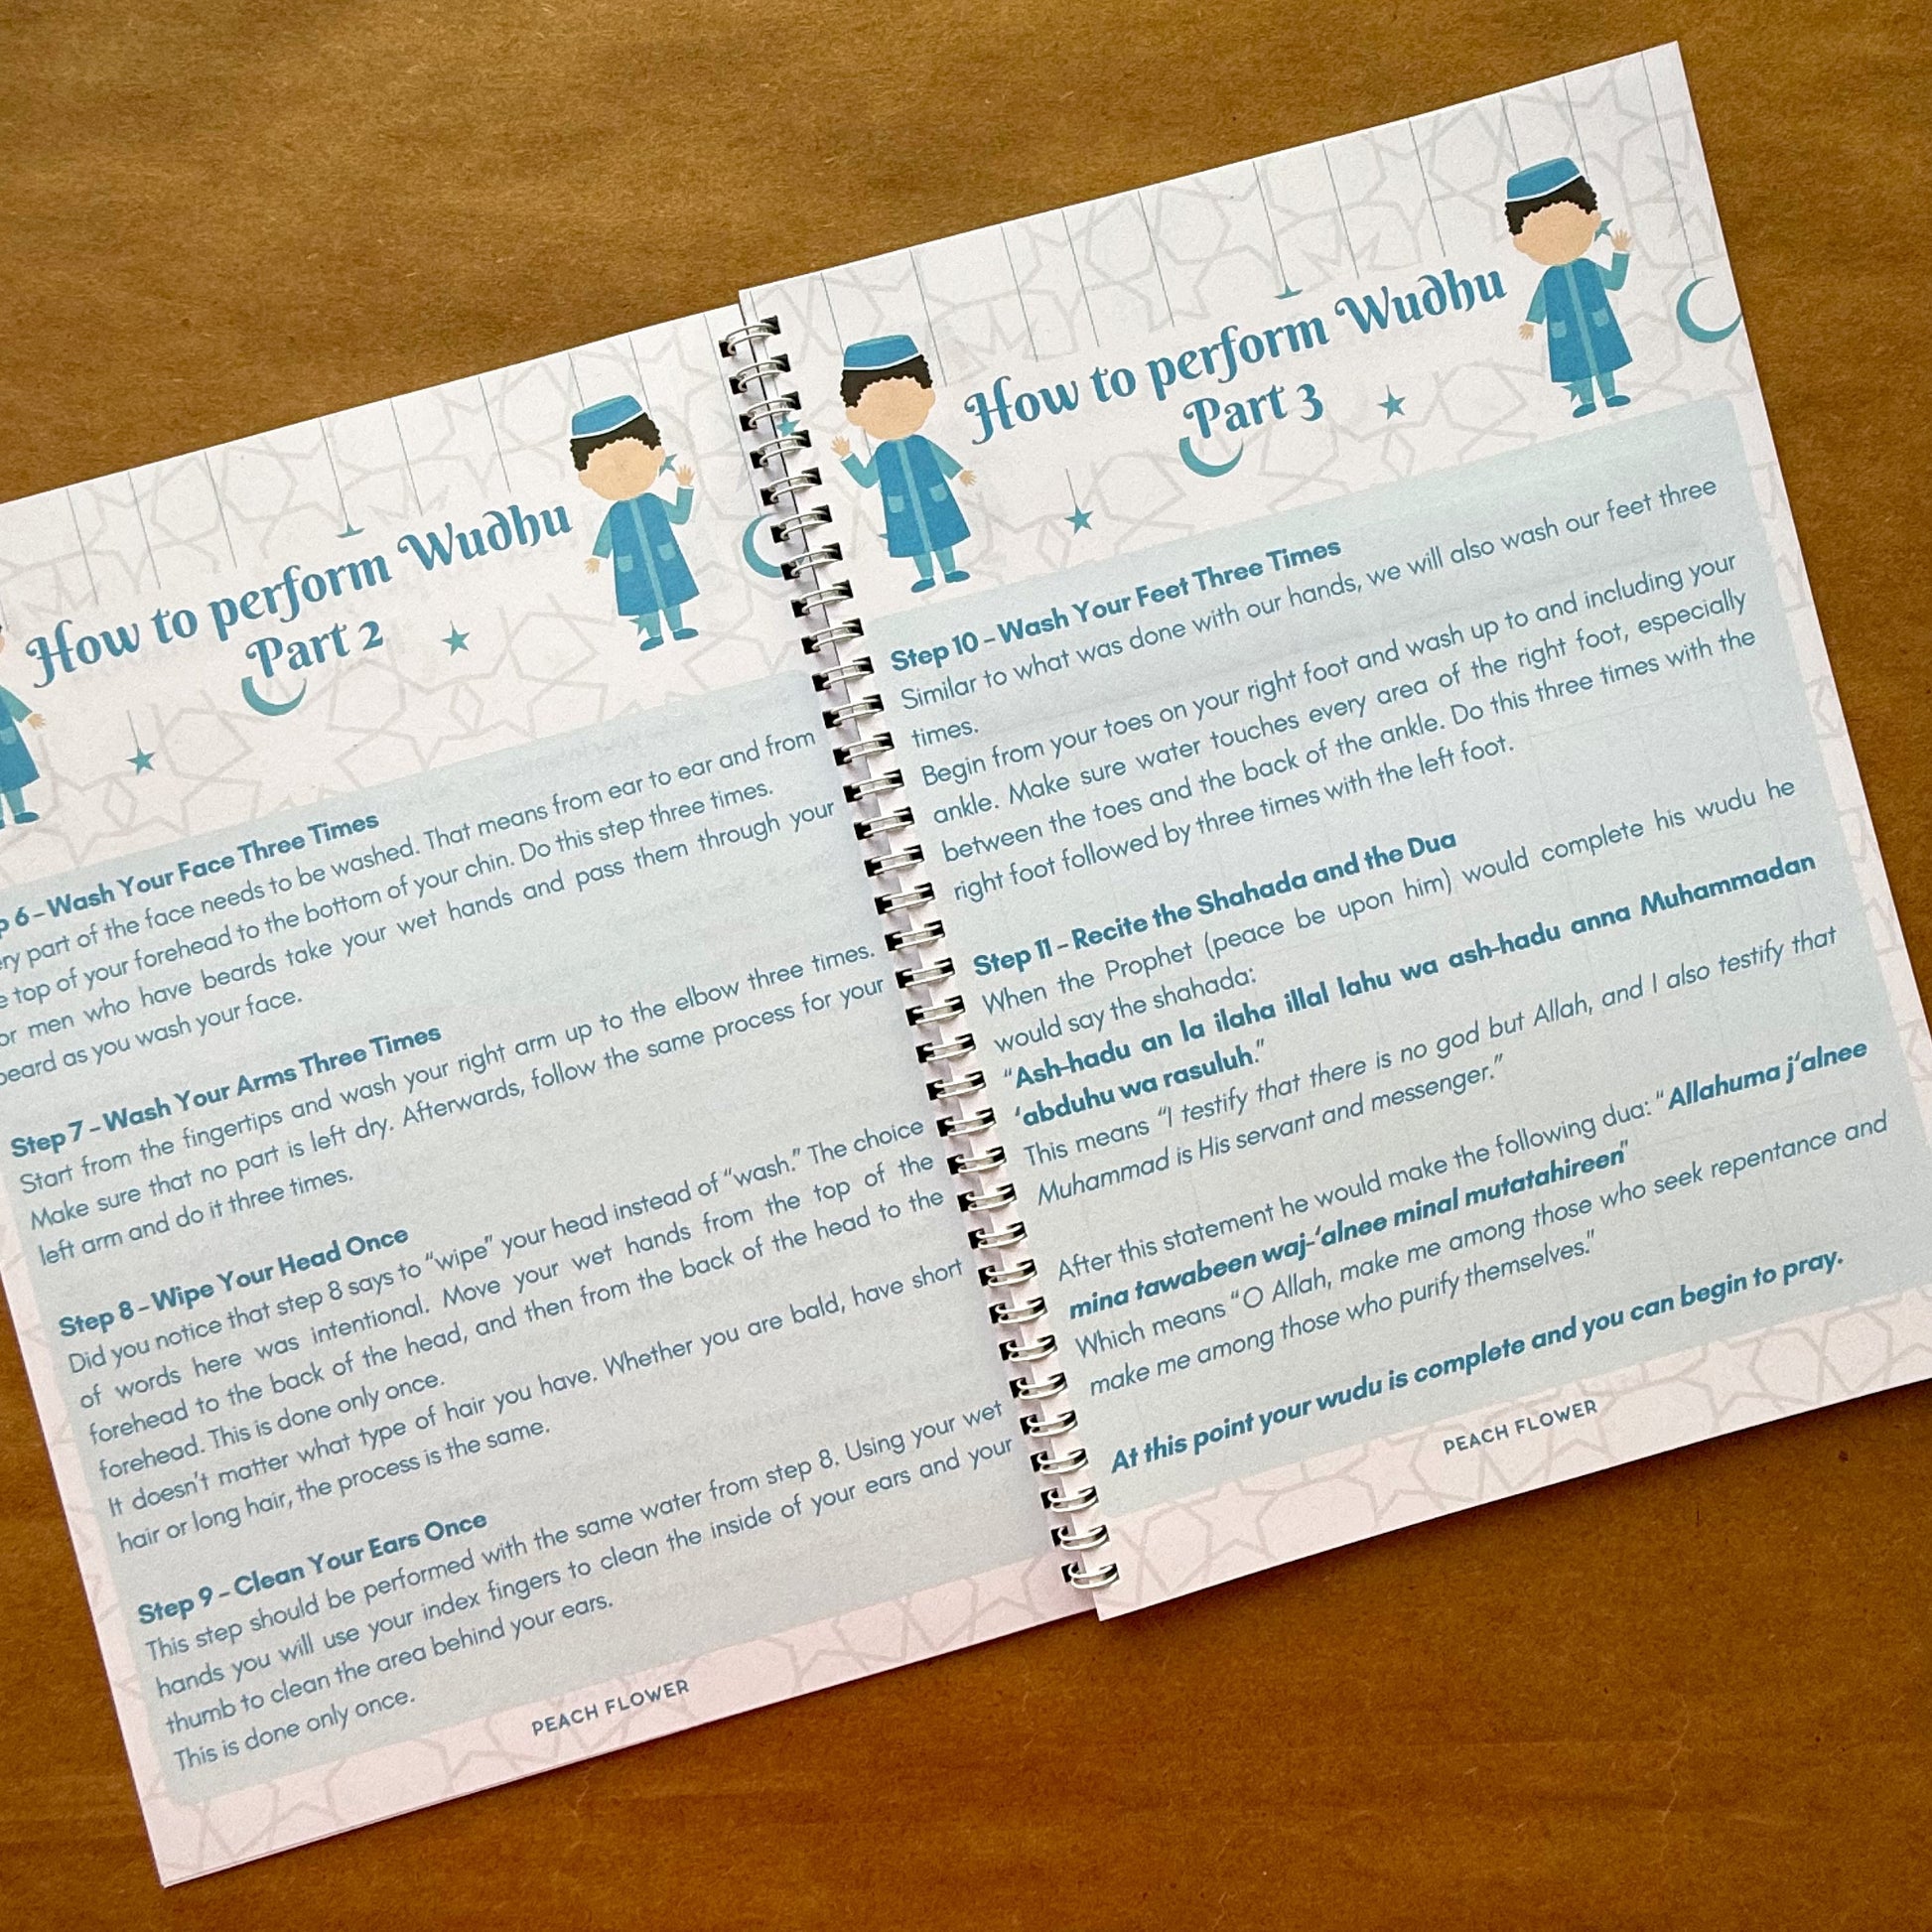 How to perform Wudhu
Part 2
6 – Wash Your Face Three Times
part of the face needs to be washed. That means from ear to ear and from
top of your forehead to the bottom of your chin. Do this step three times.
men who have beards take your wet hands and pass them through your
beard as you wash your face.
Step 7 – Wash Your Arms Three Times
Start from the fingertips and wash your right arm up to the elbow three times.
Make sure that no part is left dry. Afterwards, follow the same process for your
left arm and do it three times.
Step 8 – Wipe Your Head Once
Did you notice that step 8 says to “wipe” your head instead of “wash.” The choice
of words here was intentional. Move your wet hands from the top of the
forehead to the back of the head, and then from the back of the head to the
forehead. This is done only once.
It doesn't matter what type of hair you have. Whether you are bald, have short
hair or long hair, the process is the same.
Step 9 – Clean Your Ears Once
This step should be performed with the same water from step 8. Using your wet
hands you will use your index fingers to clean the inside of your ears and your
thumb to clean the area behind your ears.
This is done only once.
PEACH FLOWER
How to perform Wudhu
Part 3
Step 10 – Wash Your Feet Three Times
Similar to what was done with our hands, we will also wash our feet three
times.
Begin from your toes on your right foot and wash up to and including your
ankle. Make sure water touches every area of the right foot, especially
between the toes and the back of the ankle. Do this three times with the
right foot followed by three times with the left foot.
Step 11 – Recite the Shahada and the Dua
When the Prophet (peace be upon him) would complete his wudu he
would say the shahada:
“Ash-hadu an la ilaha illal lahu wa ash-hadu anna Muhammadan
‘abduhu wa rasuluh.”
This means “I testify that there is no god but Allah, and I also testify that
Muhammad is His servant and messenger.”
After this statement he would make the following dua: “Allahuma j‘alnee
mina tawabeen waj-‘alnee minal mutatahireen”
Which means “O Allah, make me among those who seek repentance and
make me among those who purify themselves.”
At this point your wudu is complete and you can begin to pray.
PEACH FLOWER